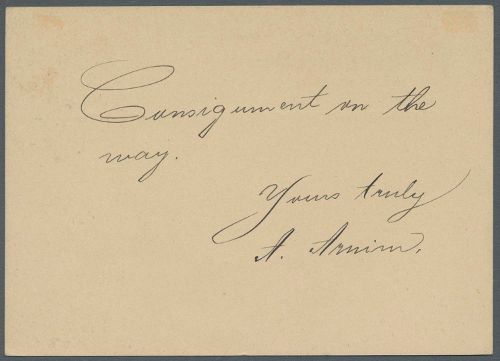 Consignment on the
way.
Yours truly
A. Arnim.